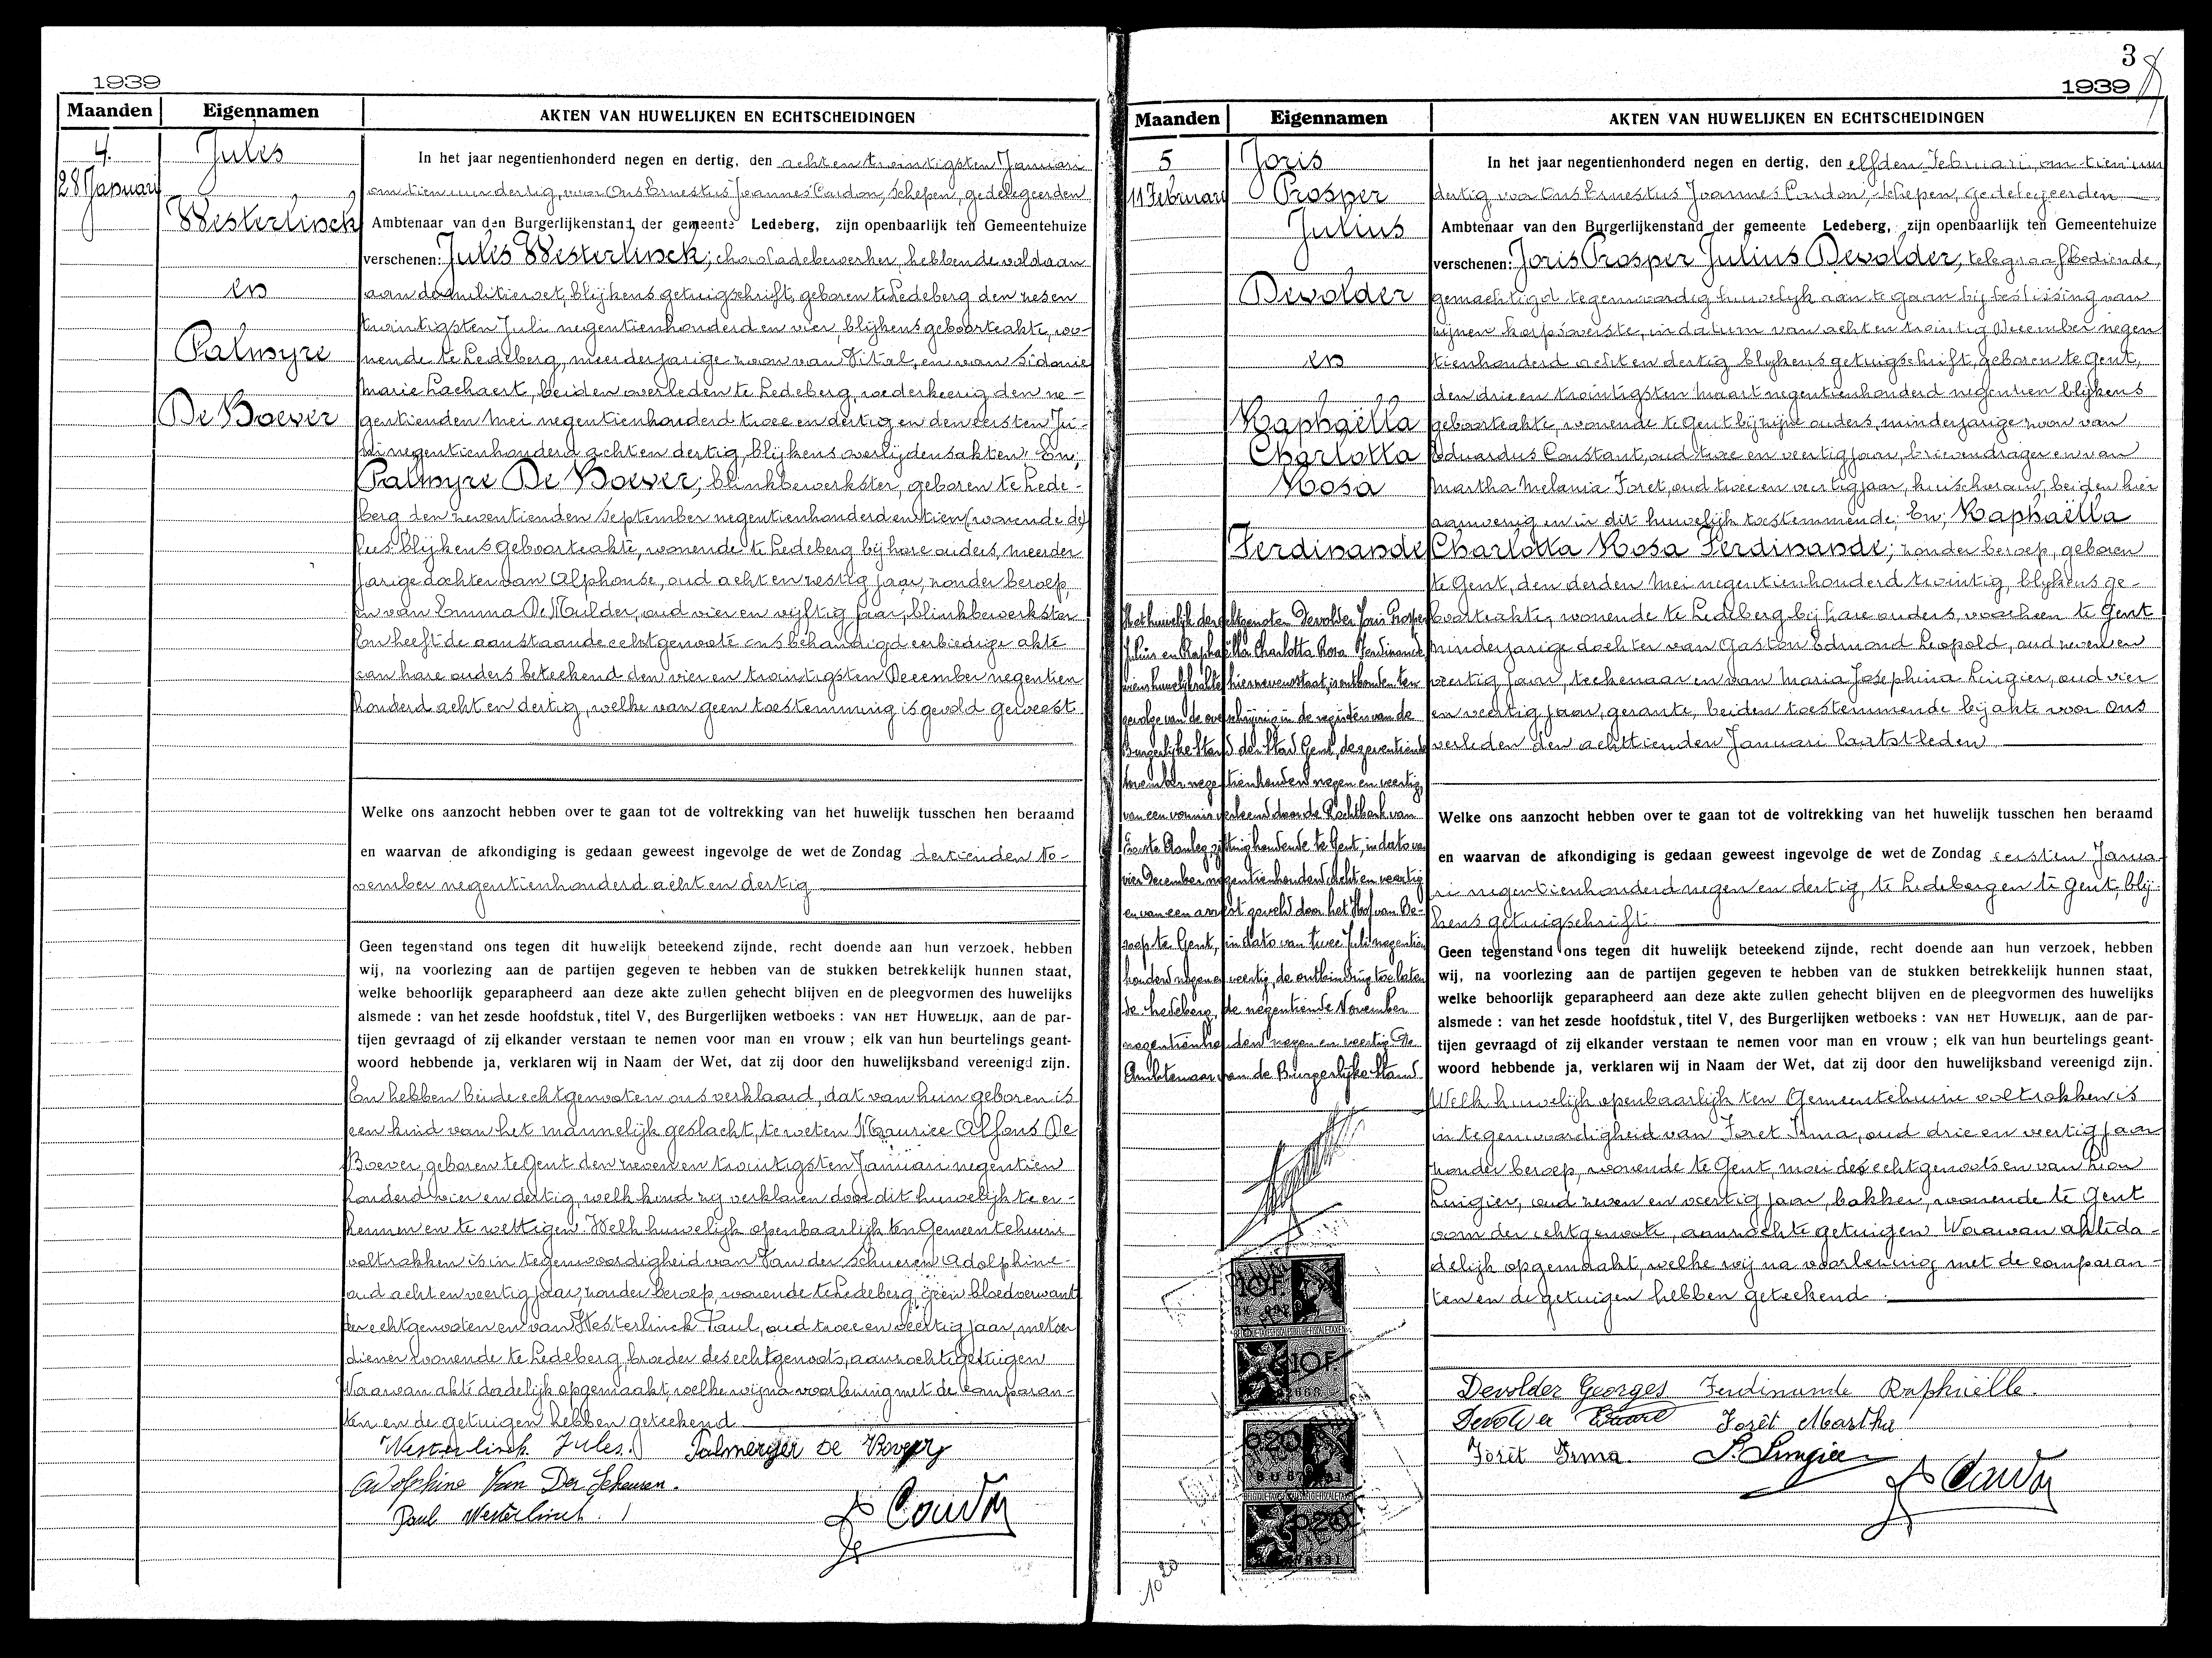 1939
Maanden Eigennamen AKTEN VAN HUWELIJKEN EN ECHTSCHEIDINGEN
4.
28 Januari
Jules
Westerlinck
en
Palmyre
De Boever
In het jaar negentienhonderd negen en dertig, den acht en twintigsten Januari
om tien uur dertig, voor Ons Ernestus Joannes Cardon, Schepen, gedelegeerden
Ambtenaar van den Burgerlijkenstand der gemeente Ledeberg, zijn openbaarlijk ten Gemeentehuize
verschenen: Jules Westerlinck; chocoladebewerker, hebbende voldaan
aan de militiewet, blijkens getuigschrift, geboren te Ledeberg den zesen
twintigsten Juli negentienhonderd en vier, blijkens geboorteakte, wo-
nende te Ledeberg, meerderjarige zoon van Vital, en van Sidonie
Marie Lachaert, beiden overleden te Ledeberg, wederkeerig den ne-
gentienden Mei negentienhonderd twee en dertig en den eersten Ju-
ni negentienhonderd acht en dertig, blijkens overlijdensakten. En;
Palmyre De Boever; blinkbewerkster, geboren te Lede-
berg den zeventienden September negentienhonderd en tien (wonende de)
blijkens geboorteakte, wonende te Ledeberg bij hare ouders, meerder
jarige dochter van Alphonse, oud acht en zestig jaar, zonder beroep,
en van Emma De Mulder, oud vier en vijftig jaar, blinkbewerkster
En heeft de aanstaande echtgenoote ons behandigd eerbiedige akte
aan hare ouders beteekend den vier en twintigsten December negentien
honderd acht en dertig, welke van geen toestemming is gevolgd geweest
Welke ons aanzocht hebben over te gaan tot de voltrekking van het huwelijk tusschen hen beraamd
en waarvan de afkondiging is gedaan geweest ingevolge de wet de Zondag dertienden No-
vember negentienhonderd acht en dertig
Geen tegenstand ons tegen dit huwelijk beteekend zijnde, recht doende aan hun verzoek, hebben
wij, na voorlezing aan de partijen gegeven te hebben van de stukken betrekkelijk hunnen staat,
welke behoorlijk geparapheerd aan deze akte zullen gehecht blijven en de pleegvormen des huwelijks
alsmede : van het zesde hoofdstuk, titel V, des Burgerlijken wetboeks : VAN HET HUWELIJK, aan de par-
tijen gevraagd of zij elkander verstaan te nemen voor man en vrouw ; elk van hun beurtelings geant-
woord hebbende ja, verklaren wij in Naam der Wet, dat zij door den huwelijksband vereenigd zijn.
En hebben beide echtgenooten ons verklaard, dat van hun geboren is
een kind van het mannelijk geslacht, te weten Maurice Alfons De
Boever, geboren te Gent den zeven en twintigsten Januari negentien
honderd vier en dertig, welk kind zij verklaren door dit huwelijk te er-
kennen en te wettigen. Welk huwelijk openbaarlijk ten Gemeentehuize
voltrokken is in tegenwoordigheid van Van der Schueren Adolphine
oud acht en veertig jaar, zonder beroep, wonende te Ledeberg, geen bloedverwant
der echtgenooten en van Westerlinck Paul, oud twee en veertig jaar, metser
diener wonende te Ledeberg, broeder des echtgenoots, aanzochte getuigen
Waarvan akte dadelijk opgemaakt, welke wij na voorlezing met de comparan-
ten en de getuigen hebben geteekend
Westerlinck Jules. De Boever
Adolphine Van Der Scheuren.
Paul Westerlinck
3
1939
Maanden Eigennamen AKTEN VAN HUWELIJKEN EN ECHTSCHEIDINGEN
5
11 Februari
Joris
Prosper
Julius
Devolder
en
Raphaëlla
Charlotta
Rosa
Ferdinande
Het huwelijk der echtgenoten Devolder Joris Prosper
Julius en Raphaëlla Charlotta Rosa Ferdinande
wiens huwelijksakte hiernevenstaat, is ontbonden ten
gevolge van de overschrijving in de registers van de
Burgerlijke Stand der Stad Gent, de zeventiende
November negentienhonderd negen en veertig,
van een vonnis verleend door de Rechtbank van
Eerste Aanleg, zitting houdende te Gent, in dato van
vier December negentienhonderd acht en veertig
en van een arrest geveld door het Hof van Be-
roep te Gent, in dato van twee Juli negentien
honderd negen en veertig, de ontbinding toelaten
de. Ledeberg, de negentiende November
negentienhonderd negen en veertig. De
Ambtenaar van de Burgerlijke Stand
10F
10F
0.20
0.20
10 20
In het jaar negentienhonderd negen en dertig, den elfden Februari, om tien uur
dertig voor Ons Ernestus Joannes Cardon, Schepen, gedelegeerden
Ambtenaar van den Burgerlijkenstand der gemeente Ledeberg, zijn openbaarlijk ten Gemeentehuize
verschenen: Joris Prosper Julius Devolder; telegraafbediende,
gemachtigd tegenwoordig huwelijk aan te gaan bij beslissing van
zijnen korpsoverste, in datum van acht en twintig December negen
tienhonderd acht en dertig blijkens getuigschrift, geboren te Gent,
den drie en twintigsten Maart negentienhonderd negentien blijkens
geboorteakte, wonende te Gent bij zijne ouders, minderjarige zoon van
Eduardus Constant, oud twee en veertig jaar, brievendrager en van
Martha Melania Foret, oud twee en veertig jaar, huisvrouw, beiden hier
aanwezig en in dit huwelijk toestemmende; En; Raphaëlla
Charlotta Rosa Ferdinande; zonder beroep, geboren
te Gent, den derden Mei negentienhonderd twintig, blijkens ge-
boorteakte, wonende te Ledeberg bij hare ouders, voorheen te Gent
minderjarige dochter van Gaston Edmond Leopold, oud zeven en
veertig jaar, teekenaar en van Maria Josephina Lingier, oud vier
en veertig jaar, gerante, beiden toestemmende bij akte voor Ons
verleden den achttienden Januari laatstleden
Welke ons aanzocht hebben over te gaan tot de voltrekking van het huwelijk tusschen hen beraamd
en waarvan de afkondiging is gedaan geweest ingevolge de wet de Zondag eersten Janua-
ri negentienhonderd negen en dertig, te Ledeberg en te Gent, blij-
kens getuigschrift.
Geen tegenstand ons tegen dit huwelijk beteekend zijnde, recht doende aan hun verzoek, hebben
wij, na voorlezing aan de partijen gegeven te hebben van de stukken betrekkelijk hunnen staat,
welke behoorlijk geparapheerd aan deze akte zullen gehecht blijven en de pleegvormen des huwelijks
alsmede : van het zesde hoofdstuk, titel V, des Burgerlijken wetboeks : VAN HET HUWELIJK, aan de par-
tijen gevraagd of zij elkander verstaan te nemen voor man en vrouw ; elk van hun beurtelings geant-
woord hebbende ja, verklaren wij in Naam der Wet, dat zij door den huwelijksband vereenigd zijn.
Welk huwelijk openbaarlijk ten Gemeentehuize voltrokken is
in tegenwoordigheid van Foret Irma, oud drie en veertig jaar
zonder beroep, wonende te Gent, moei des echtgenoots en van Leon
Lingier, oud zeven en veertig jaar, bakker, wonende te Gent
oom der echtgenoote, aanzochte getuigen. Waarvan akte da-
delijk opgemaakt, welke wij na voorlezing met de comparan-
ten en de getuigen hebben geteekend.
Devolder Georges Ferdinande Raphaëlle.
Devolder Forêt Martha
Forêt Irma. L. Lingier